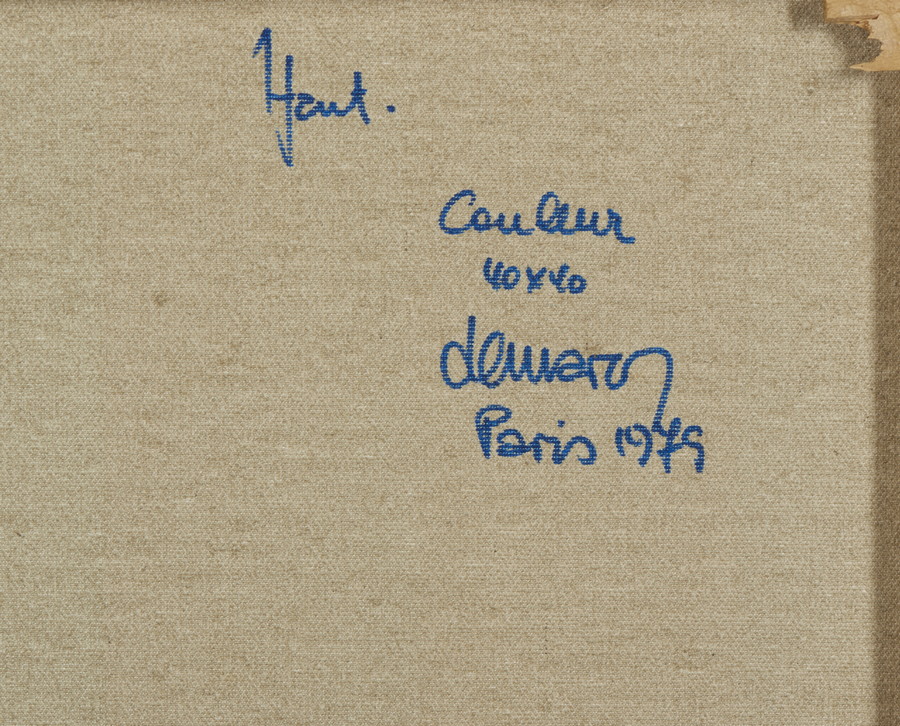 Haut.
Couleur
40x40
demarco
Paris 1979